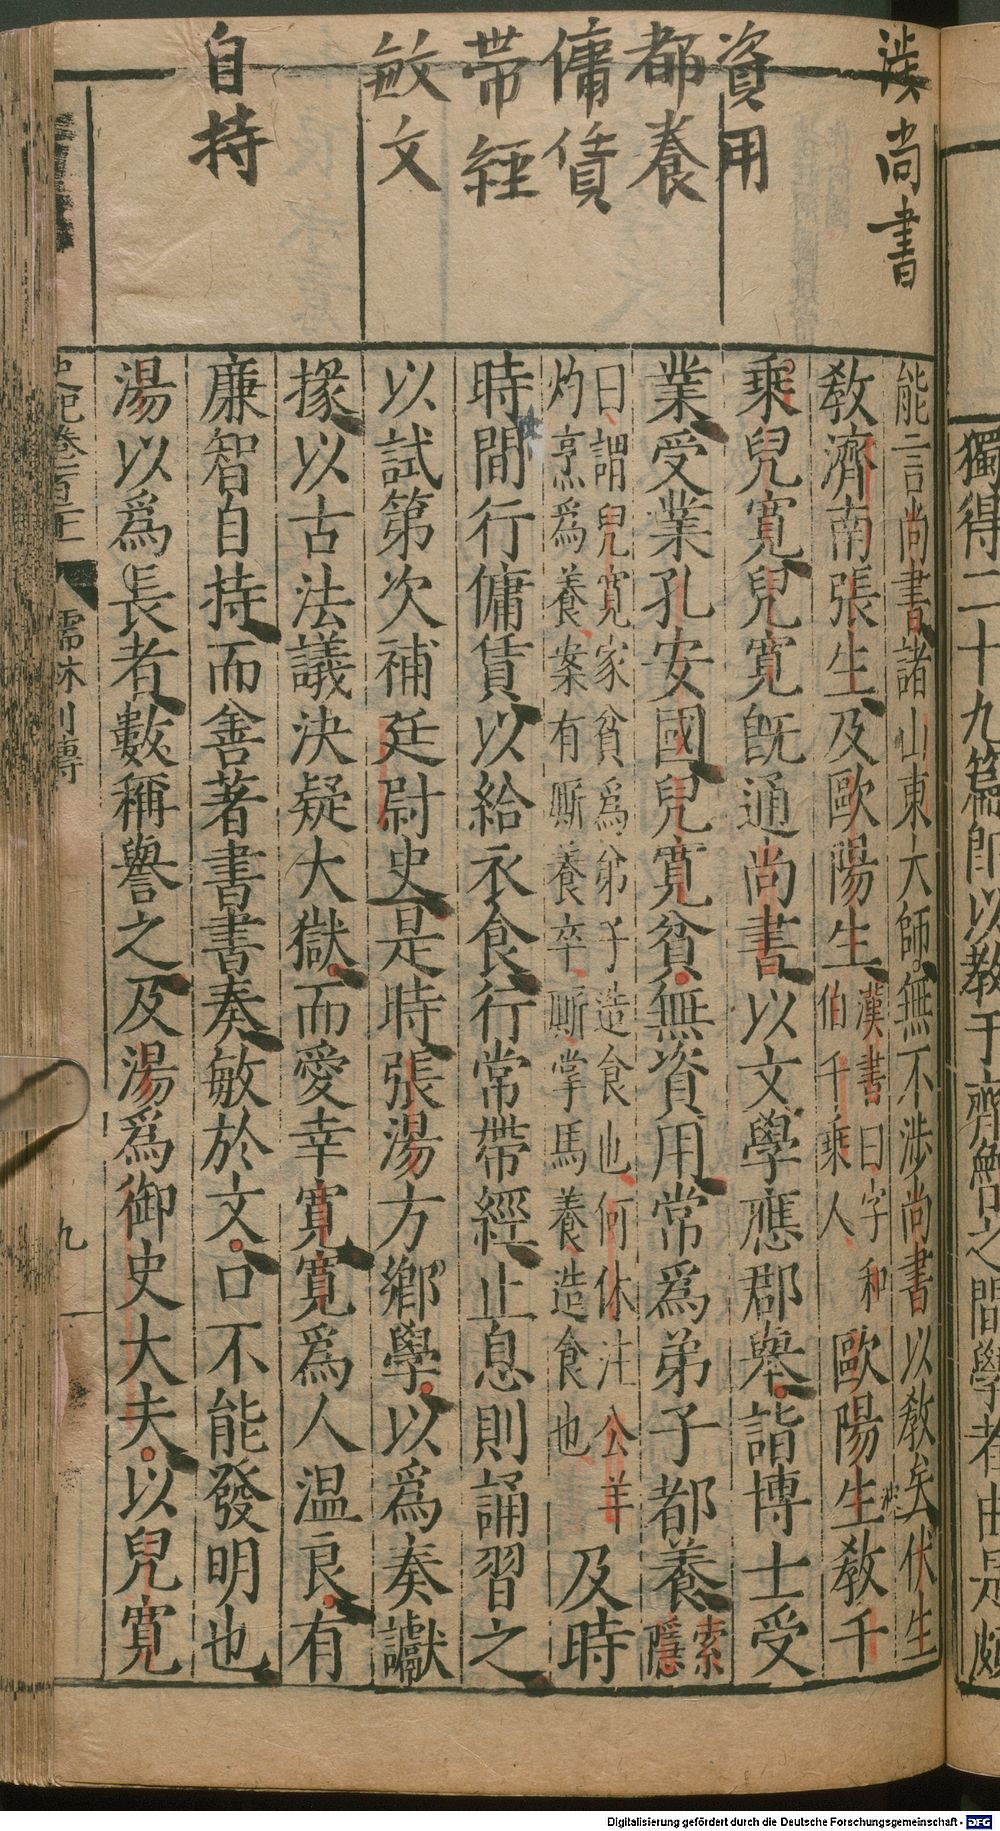 涉尚書
資用
都養
傭賃
帶經
敏文
自持
獨得二十九篇即以教于齊魯之間學者由是頗
能言尚書諸山東大師無不涉尚書以教矣伏生
教濟南張生及歐陽生漢書曰字和伯千乘人歐陽生教千
乘兒寬兒寬既通尚書以文學應郡舉詣博士受
業受業孔安國兒寬貧無資用常爲弟子都養索隱
曰謂兒寬家貧爲弟子造食也何休注公羊灼烹爲養案有厮養卒厮掌馬養造食也及時
時間行傭賃以給衣食行常帶經止息則誦習之
以試第次補廷尉史是時張湯方鄉學以爲奏讞
掾以古法議決疑大獄而愛幸寬寬爲人温良有
廉智自持而善著書書奏敏於文口不能發明也
湯以爲長者數稱譽之及湯爲御史大夫以兒寬
史記卷百二十一
儒林列傳
九
Digitalisierung gefördert durch die Deutsche Forschungsgemeinschaft - DFG